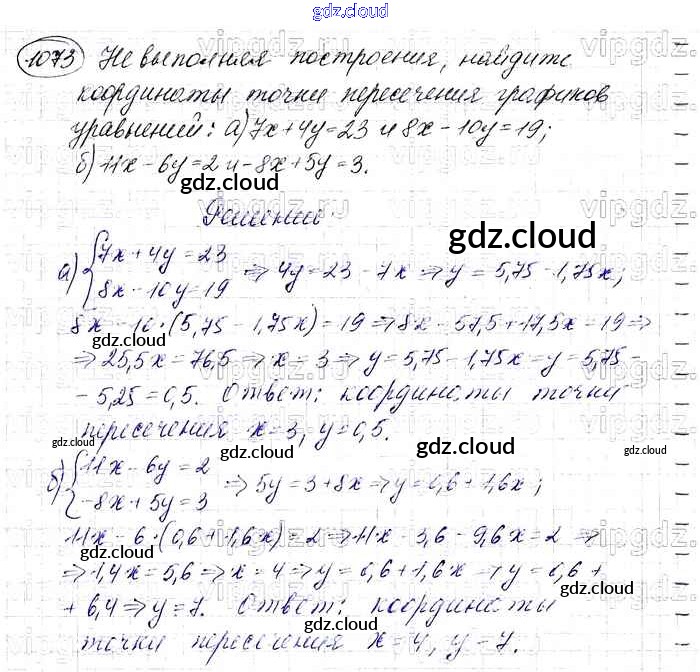 gdz.cloud
1073 Не выполняя построения, найдите
координаты точки пересечения графиков
уравнений: а) 7x+4y=23 и 8x-10y=19;
б) 11x-6y=2 и -8x+5y=3.
gdz.cloud
Решение
gdz.cloud
а) {7x+4y=23
8x-10y=19 ⇒ 4y=23-7x ⇒ y=5,75-1,75x;
8x-10·(5,75-1,75x)=19 ⇒ 8x-57,5+17,5x=19 ⇒
gdz.cloud gdz.cloud
⇒ 25,5x=76,5 ⇒ x=3 ⇒ y=5,75-1,75x=y=5,75-
-5,25=0,5. Ответ: координаты точки
пересечения x=3, y=0,5.
gdz.cloud gdz.cloud gdz.cloud
б) {11x-6y=2
-8x+5y=3 ⇒ 5y=3+8x ⇒ y=0,6+1,6x;
gdz.cloud
11x-6·(0,6+1,6x)=2 ⇒ 11x-3,6-9,6x=2 ⇒
gdz.cloud
⇒ 1,4x=5,6 ⇒ x=4 ⇒ y=0,6+1,6x ⇒ y=0,6+
gdz.cloud
+6,4 ⇒ y=7. Ответ: координаты
точки пересечения x=4, y=7.
gdz.cloud
vipgdz